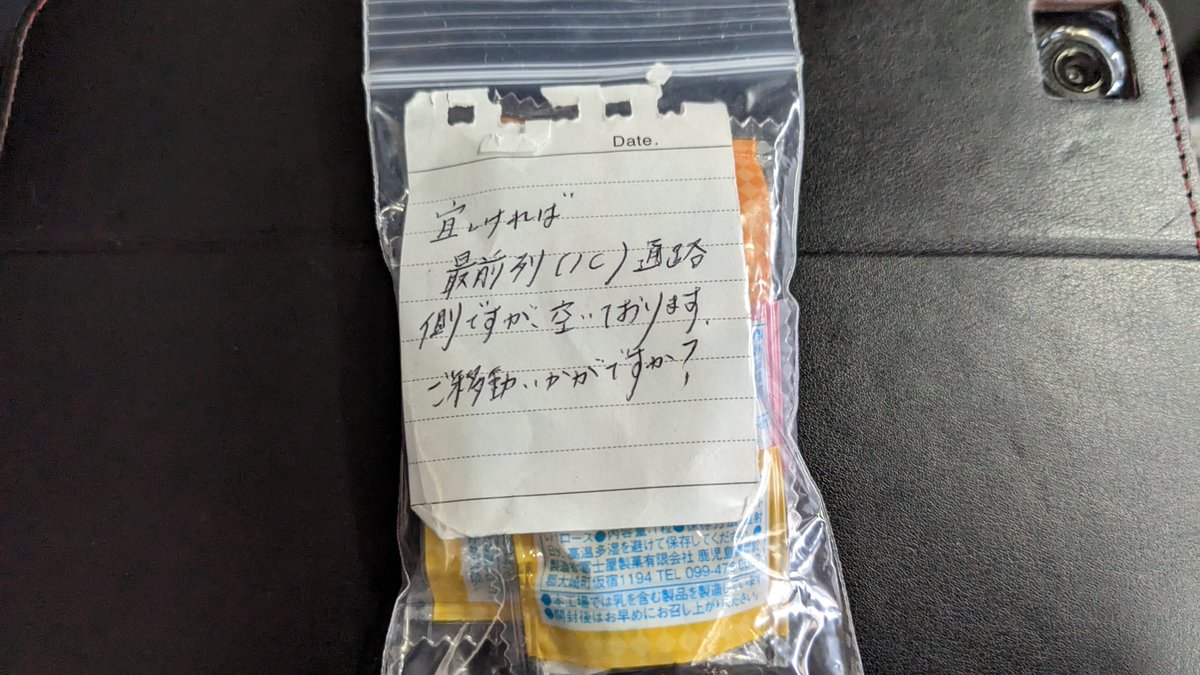 Date.
宜しければ
最前列(1C)通路
側ですが、空いております。
ご移動いかがですか?
高温多湿を避けて保存してくだ
富士屋製菓有限会社 鹿児島
郡大崎町仮宿1194 TEL 099-47
●本工場では乳を含む製品を製造しています
●開封後はお早めにお召し上がりください。